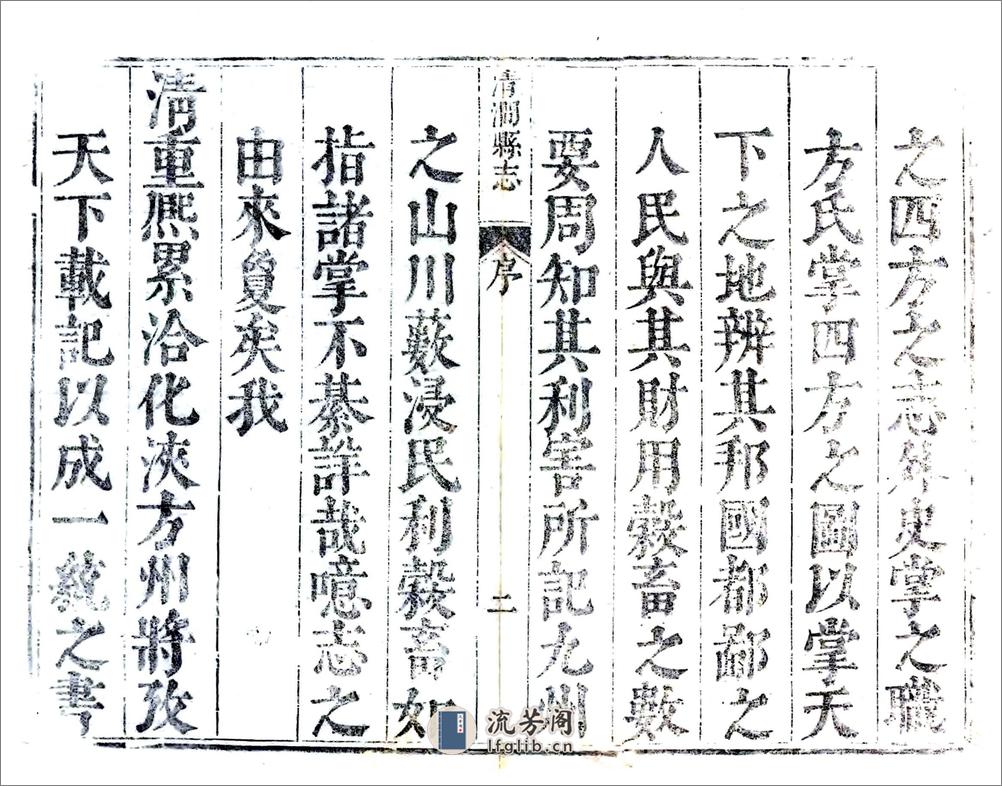 之四方之志外史掌之職
方氏掌四方之圖以掌天
下之地辨其邦國都鄙之
人民與其財用穀畜之數
要周知其利害所記九州
清澗縣志
序
二
之山川藪浸民利穀畜如
指諸掌不綦詳哉噫志之
由來夐矣我
清重熈累洽化浹方州將攷
天下載記以成一統之書
流芳阁
lfglib.cn